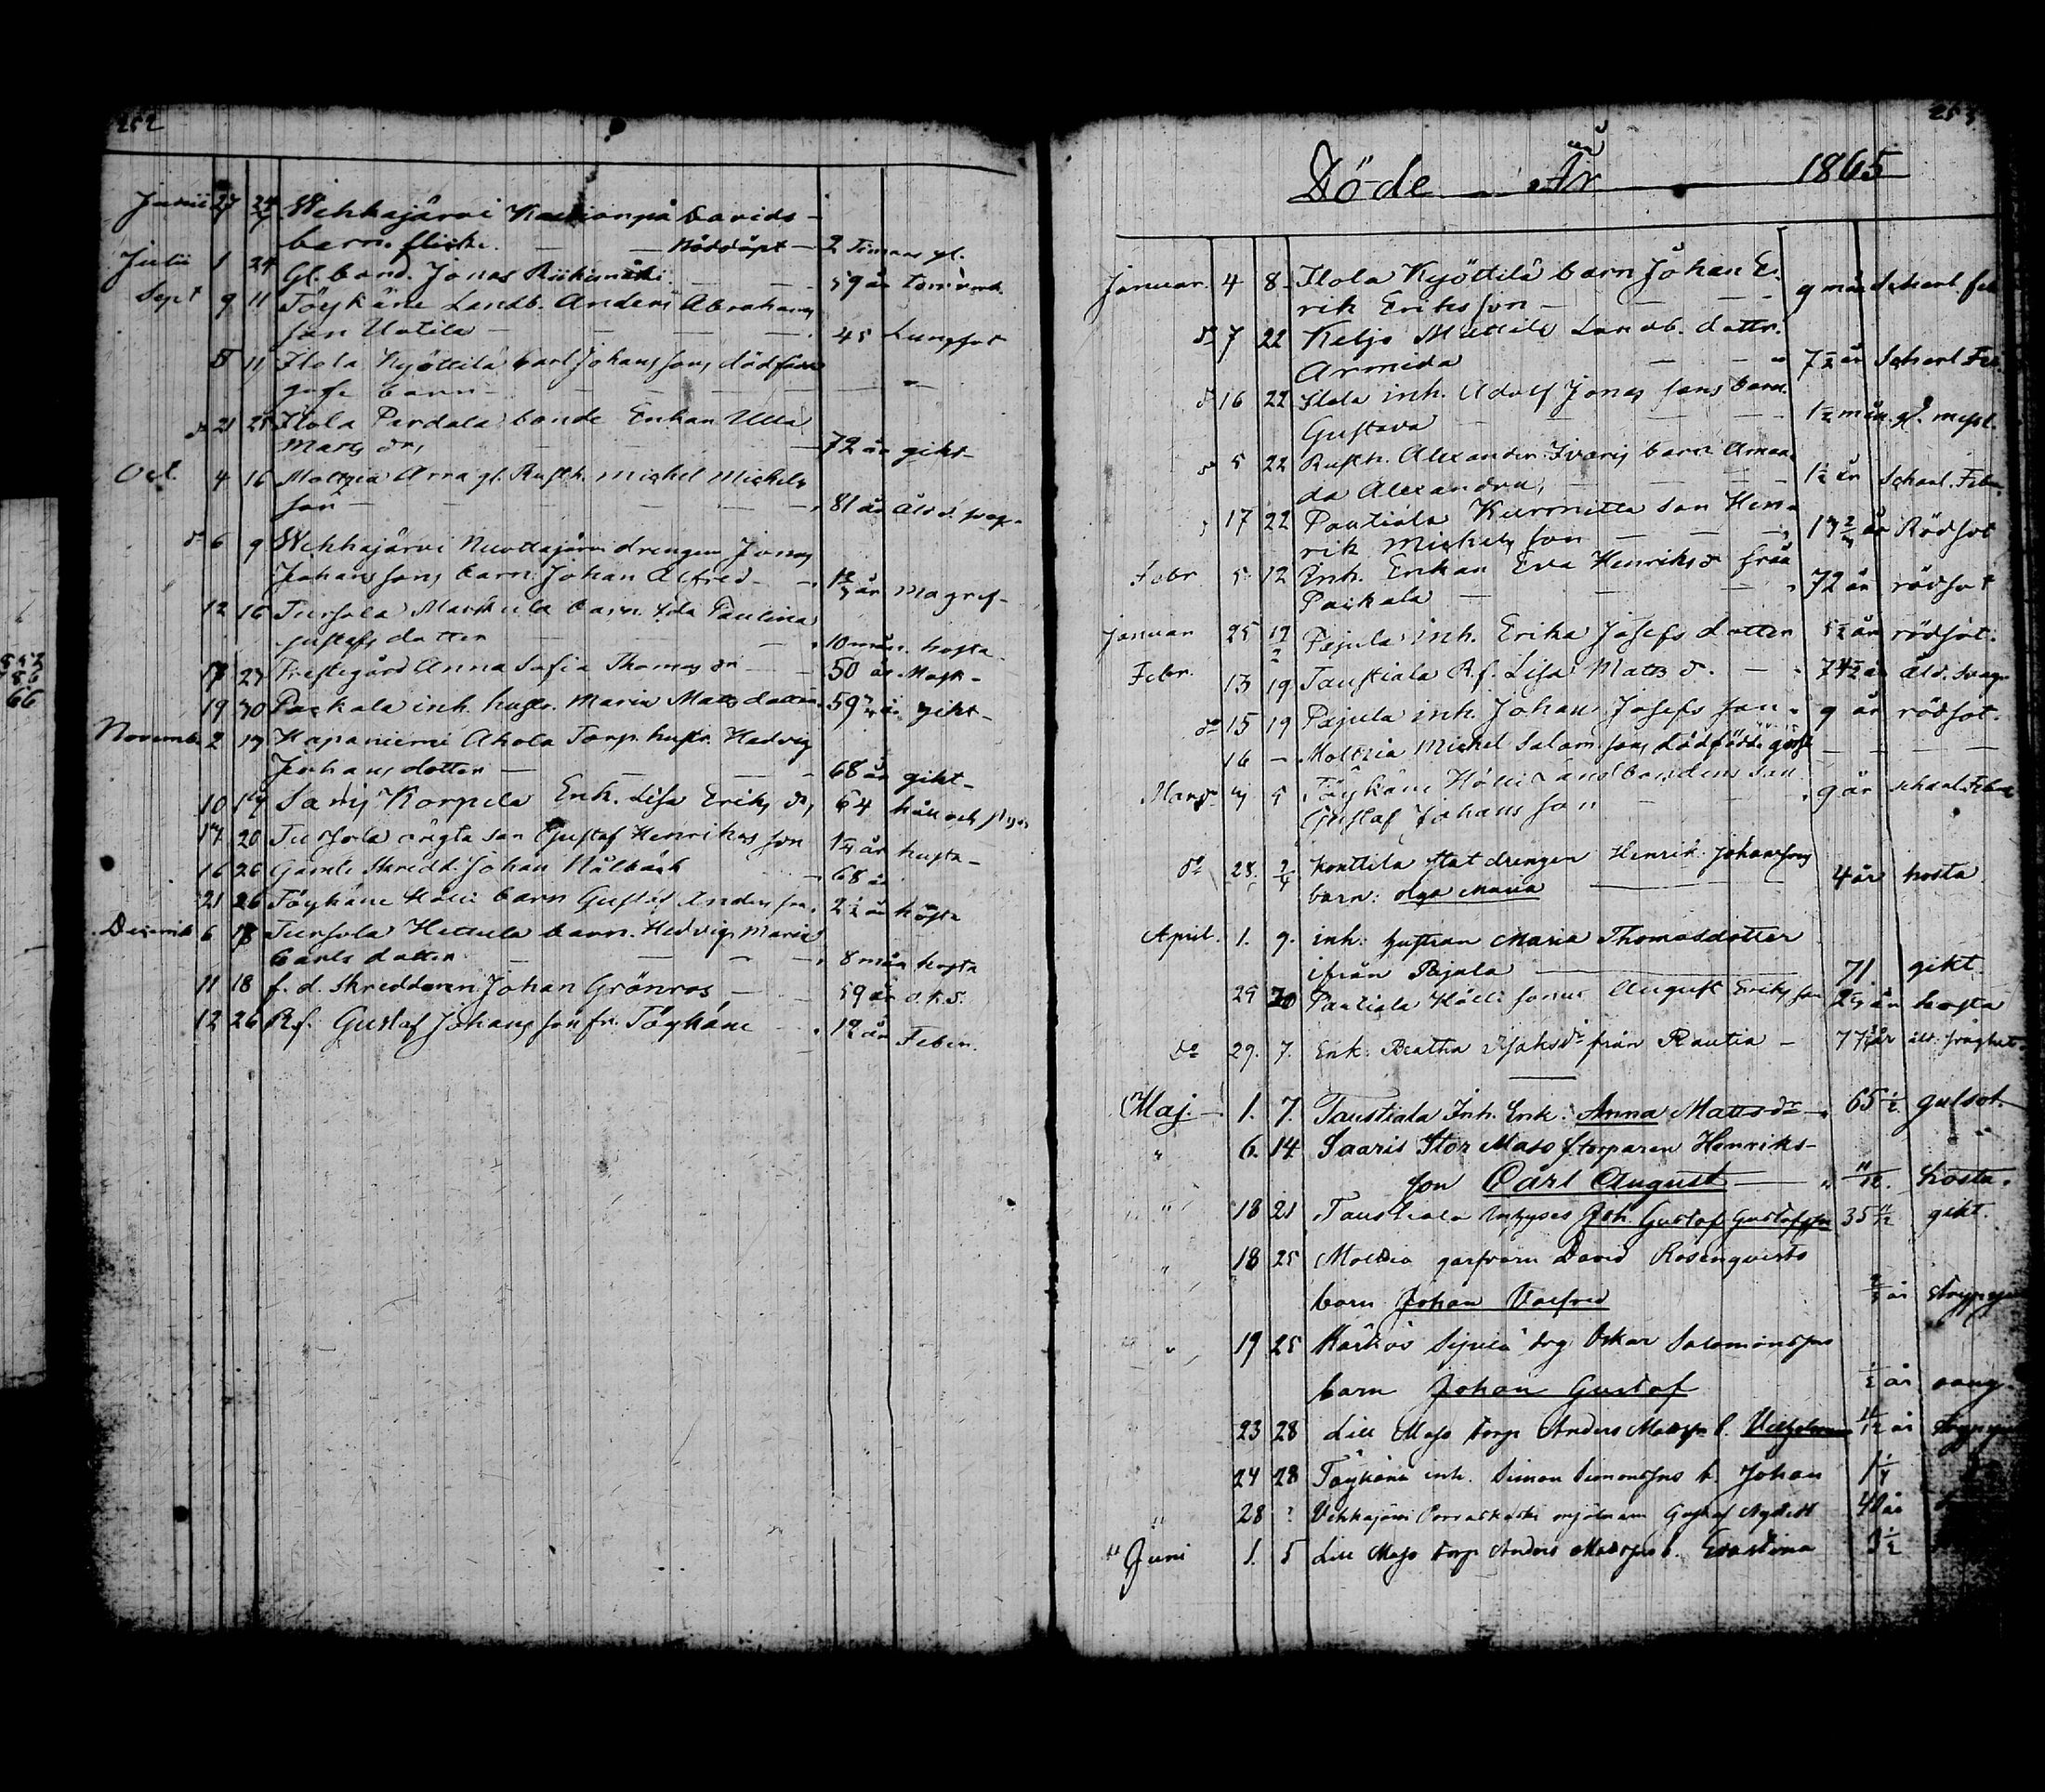 252
Junii 27 24/7 Wehkajärvi Davids
barn. flicka. — — Nöddöpt — 2 Timars gl.
Julii 1 24 Gl. bond. Jonas Riihimäki — — 59 år
Sept 9 11 Töykäne Landb. Anders Abrahams
son Uotila — — — 45 Lungsot
11 Ilola Kyöttilä Carl Johans sons dödfödda
gosse barn — — —
do 21 25 Ilola Perdala bonde Enkan Ulla
Mats dr, — 72 år gikt —
Oct. 4 16 Moltzia Arra gl. Rusth. Michel Michels
son — — — 81 år Ålds. svag.
do 6 9 Wehkajärvi Nuottajärvi drengen Jonas
Johans sons barn Johan Alfred — år Magref —
12 16 Tursola Markula barn. Ida Paulina
Gustafs dotter — — 10 mån. hosta.
17 23 Prestegård Anna Sofia Thomas dr — 50 år
19 30 Paskala inh. hustr. Maria Mats dotter 59 gikt —
Novemb. 2 13 Hapaniemi Ahola Torp. hustr. Hedvig
Johans dotter — — — 68 år gikt —
10 19 Sarij Korpela Enk. Lisa Eriks dr, 64 håll och styng
17 20 Tursola oägta son Gustaf Henriksson 1 1/4 år hosta —
16 26 Gamle Skredd. Johan Hålbäck 68 år
21 26 Töykäne Hölli barn Gustaf Andersson. 2 1/2 år hosta
Decemb. 6 18 Tursola Hettula barn. Hedvig Maria
Carls dotter — — — 8 mån hosta
11 18 f. d. Skreddaren Johan Grönros — — 59 år d. k. s.
12 26 Rf. Gustaf Johans son fr. Töykäne 12 år Feber.
253
Döde År 1865
Januar. 4 8 Ilola Kyöttilä barn Johan E-
rik Eriksson — — — 9 mån Scharl. feb
do 7 22 Keljo Mattila Landb. dottr.
Armida — — — 7 1/2 år Scharl Feb.
do 16 22 Ilola inh. Adolf Jonas sons barn
Gustava — — — 1 1/2 mån. gl. mässl.
do 5 22 Rusth. Alexander Ivars barn Aman-
da Alexandra, — — 1 1/2 år Scharl. Feber.
17 22 Pautiala Kurmitta son Hen-
rik Michels son — — år Rödsot
Febr. 5 12 Inh. Enkan Eva Henriks dr från
Paskala — — — 72 år rödsot
Januar 25 12/2 Pajula inh. Erika Josefs dotter 5 1/2 år rödsot.
Febr. 13 19 Taustiala R.f. Lisa Matts dr. — 74 1/2 år åld. svag.
do 15 19 Pajula inh. Johan Josefs son — 9 år rödsot.
16 — Moltzia Michel Salom. sons dödfödde gosse — — —
Mars 5 Töykäne Hölli Landbondens son
Gustaf Johans son — — 9 år Scharl. Feber
do 28. 2/4 Konttila stat drengen Henrik Johanssons
barn: Olga Maria — 4 år hosta
April. 1. 9. inh: hustrun Maria Thomasdotter
ifrån Pajula — 71 gikt.
25 30 Pautiala Hölli sonen August Eriks son år hosta
Do 29. 7. Enk: Beatha Isaksdr från Rautia — 77 år åld: svaghet.
Maj. — 1. 7. Taustiala Inh. Enk: Anna Mattsdr — 65 1/2 gulsot.
" 6. 14. Saaris Stor Maso storparen Henriks-
son Carl August — 11/12. hosta.
" 18 21 Taustiala Inhyses Joh. Gustaf Gustafsson 35 11/12 gikt.
" 18 25 Moltzia garfvaren David Rosenqvists
barn Johan Valfred år strypsju
" 19 25 Kärkös Sipilä drg Oskar Salomonssons
barn Johan Gustaf 1/2 år oang.
23 28 Lill Maso torp Anders Matssn b. Vilhelmina 11/12 år strypsju
24 28 Töykänä inh. Simon Simonssons b. Johan 1 1/4
" 28 ? Vehkajärvi Porraskoski mjölnaren Gustaf Nystedt 40 år
" Juni 1. 5 Lill Maso torp Anders Matssons b. Evastina 3 1/2